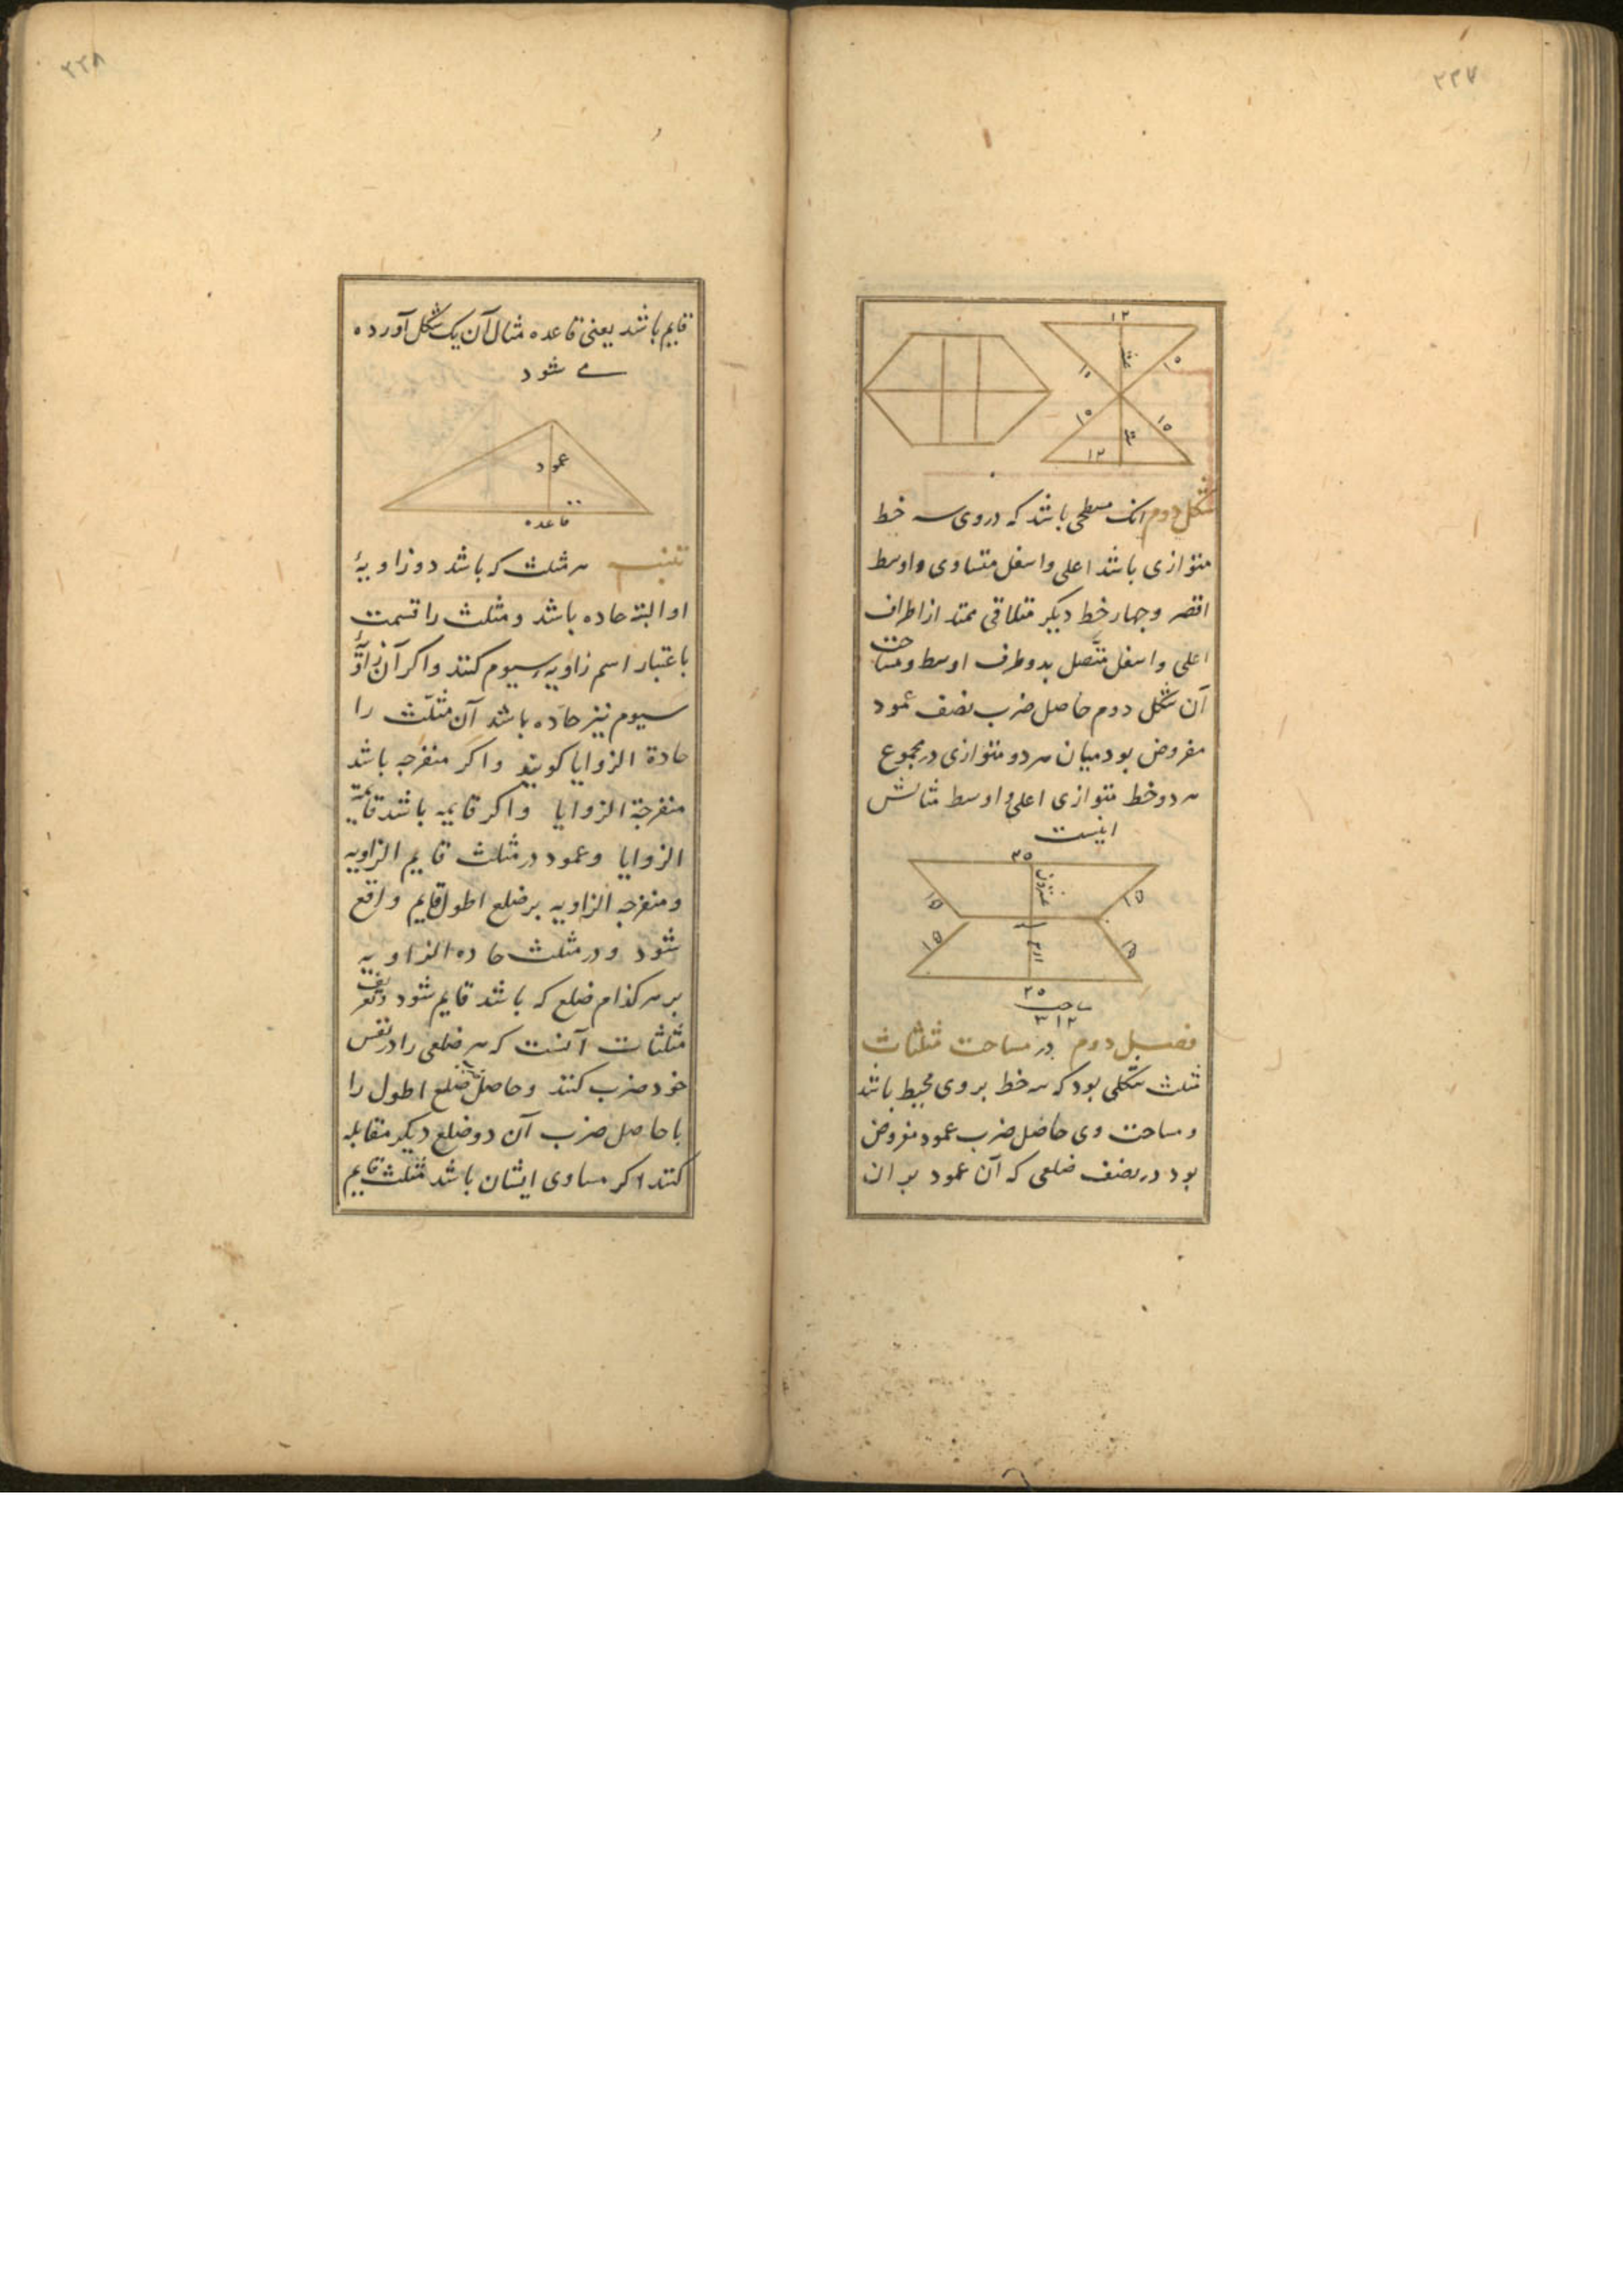 ۲۲۷
۱۲
۱۵
۱۰
۱۵
۱۵
۱۲
شکل دوم انک مسطحی باشد که در وی سه خط
متوازی باشد اعلی و اسفل متساوی و اوسط
اقصر و چهار خط دیکر متلاقی ممتد از اطراف
اعلی و اسفل متّصل بدو طرف اوسط و مساحت
آن شکل دوم حاصل ضرب نصف عمود
مفروض بود میان هر دو متوازی در مجموع
هر دو خط متوازی اعلی و اوسط مثالش
اینست
۲۵
۱۵
۱۵
۱۵
۱۵
۲۵
۳۱۲
فصل دوم در مساحت مثلثات
مثلث شکلی بود که سه خط بر وی محیط باشد
و مساحت وی حاصل ضرب عمود مفروض
بود در نصف ضلعی که آن عمود بر ان
۲۲۸
قایم باشد یعنی قاعده مثال آن یک شکل آورده
مے شود
عمود
قاعده
تنبیه هر مثلث که باشد دو زاویهٔ
او البته حاده باشد و مثلث را قسمت
باعتبار اسم زاویه سیوم کنند و اکر آن زاویهٔ
سیوم نیز حاده باشد آن مثلّث را
حادة الزوایا کویند و اکر منفرجه باشد
منفرجة الزوایا و اکر قایمه باشد قایمة
الزوایا و عمود در مثلث قایم الزاویه
و منفرجه الزاویه بر ضلع اطول قایم واقع
شود و در مثلث حاده الزاویه
بر هر کدام ضلع که باشد قایم شود و تعریف
مثلثات آنست که هر ضلعی را در نفس
خود ضرب کنند و حاصل ضلع اطول را
با حاصل ضرب آن دو ضلع دیکر مقابله
کنند اکر مساوی ایشان باشد مثلث قایم